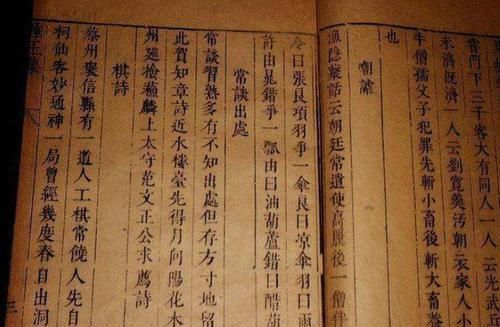 嘗門下三千客大有同人一人云光武兵
未濟既濟一人云劉寬羹汚朝衣家人小
牛僧孺父子犯罪先斬小畜後斬大畜
也
嘲謔
漁隱叢話云朝廷常遣使高麗後一僧伴
令曰張良項羽爭一傘良曰凉傘羽曰雨
許由晁錯爭一瓢由曰油葫蘆錯曰醋葫
常談出處
常談習熟多有不知出處但存方寸地留
此賀知章詩近水樓臺先得月向陽花木
州廵撿蘓麟上太守范文正公求薦詩
棋詩
蔡州褒信縣有一道人工棋常饒人先自
柯仙客妙通神一局曾經幾度春自出洞
王集
三